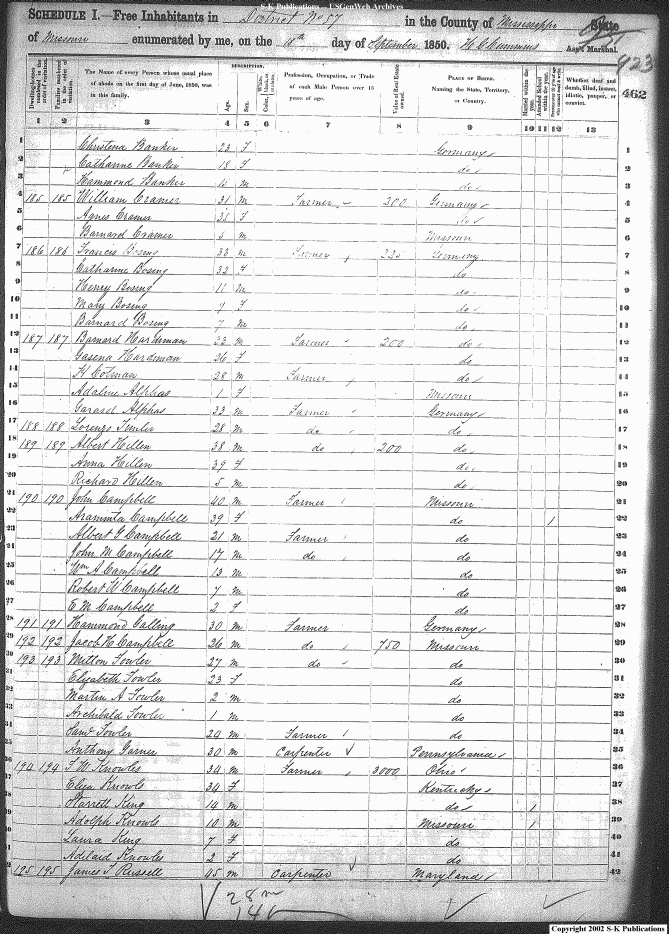 S-K Publications - USGenWeb Archives
SCHEDULE I.—Free Inhabitants in District No 57 in the County of Mississippi State
of Missouri enumerated by me, on the 11th day of September 1850. H C Cummins Ass't Marshal.
923
462
Dwelling-houses numbered in the order of visitation.
Families numbered in the order of visitation.
The Name of every Person whose usual place of abode on the first day of June, 1850, was in this family.
DESCRIPTION.
Age.
Sex.
White, black, or mulatto.
Color,
Profession, Occupation, or Trade of each Male Person over 15 years of age.
Value of Real Estate owned.
PLACE OF BIRTH. Naming the State, Territory, or Country.
Married within the year.
Attended School within the year.
Whether deaf and dumb, blind, insane, idiotic, pauper, or convict.
1 2 3 4 5 6 7 8 9 10 11 12 13
1 Christina Banker 23 F Germany 1
2 Catharine Banker 18 F do 2
3 Hammond Banker m do 3
4 185 185 William Cramer 31 m Farmer 200 Germany 4
5 Agnes Cramer 31 F do 5
6 Barnard Cramer 5 m Missouri 6
7 186 186 Francis Bosing 33 m Farmer Germany 7
8 Catharine Bosing 32 F do 8
9 Henry Bosing 11 m do 9
10 Mary Bosing 9 F do 10
11 Barnard Bosing 7 m do 11
12 187 187 Barnard Hardeman 23 m Farmer 200 do 12
13 Gasena Hardeman 26 F do 13
14 H Cotman 28 m Farmer do 14
15 Adaline Alphas 1 F Missouri 15
16 Garard Alphas 33 m Farmer Germany 16
17 188 188 Lorenzo 28 m do do 17
18 189 189 Albert Hillen 38 m do 200 do 18
19 Anna Hillen 39 F do 19
20 Richard Hillen 5 m do 20
21 190 190 John Campbell 40 m Farmer Missouri 21
22 Araminta Campbell 39 F do 1 22
23 Albert G Campbell 21 m Farmer do 23
24 John M Campbell 17 m do do 24
25 Wm A Campbell 13 m do 25
26 Robert W Campbell 7 m do 26
27 E M Campbell 2 F do 27
28 191 191 Hammond Calling 30 m Farmer Germany 28
29 192 192 Jacob H Campbell 26 m do 750 Missouri 29
30 193 193 Milton Fowler 27 m do do 30
31 Elizabeth Fowler 23 F do 31
32 Martin A Fowler 2 m do 32
33 Archibald Fowler 1 m do 33
34 Saml Fowler 24 m Farmer do 34
35 Anthony Garner 30 m Carpenter Pennsylvania 35
36 194 194 F W Knowles 34 m Farmer 3000 Ohio 36
37 Eliza Knowls 34 F Kentucky 37
38 Harrett King 14 m do 1 38
39 Adolph Knowls 10 m Missouri 1 39
40 Laura King 7 F do 40
41 Adelaid Knowles 2 F do 41
42 195 195 James T Russell 45 m Carpenter Maryland 42
28 m
14
Copyright 2002 S-K Publications